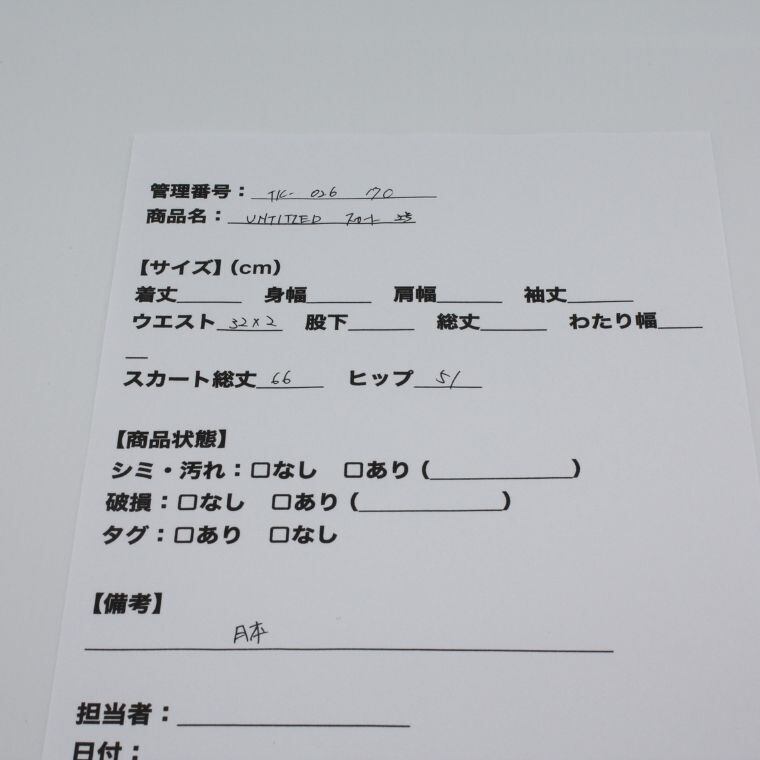 管理番号： TK- 026 70
商品名： UNTITLED スカート
【サイズ】(cm)
着丈______ 身幅______ 肩幅______ 袖丈______
ウエスト 32×2 股下______ 総丈______ わたり幅____
__
スカート総丈 66 ヒップ 51
【商品状態】
シミ・汚れ：□なし □あり (____________)
破損：□なし □あり (____________)
タグ：□あり □なし
【備考】
日本
担当者：____________
日付：